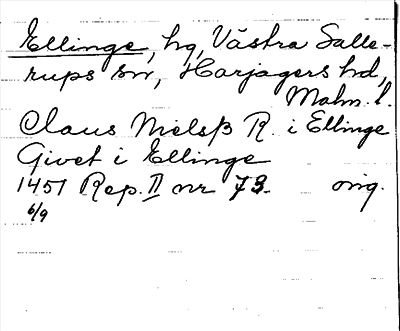 Ellinge, hg, Västra Salle-
rups sn, Harjagers hd,
Malm. l.
Claus Nielsß R. i Ellinge
Givet i Ellinge
1451 Rep. II nr 73. orig.
6/9